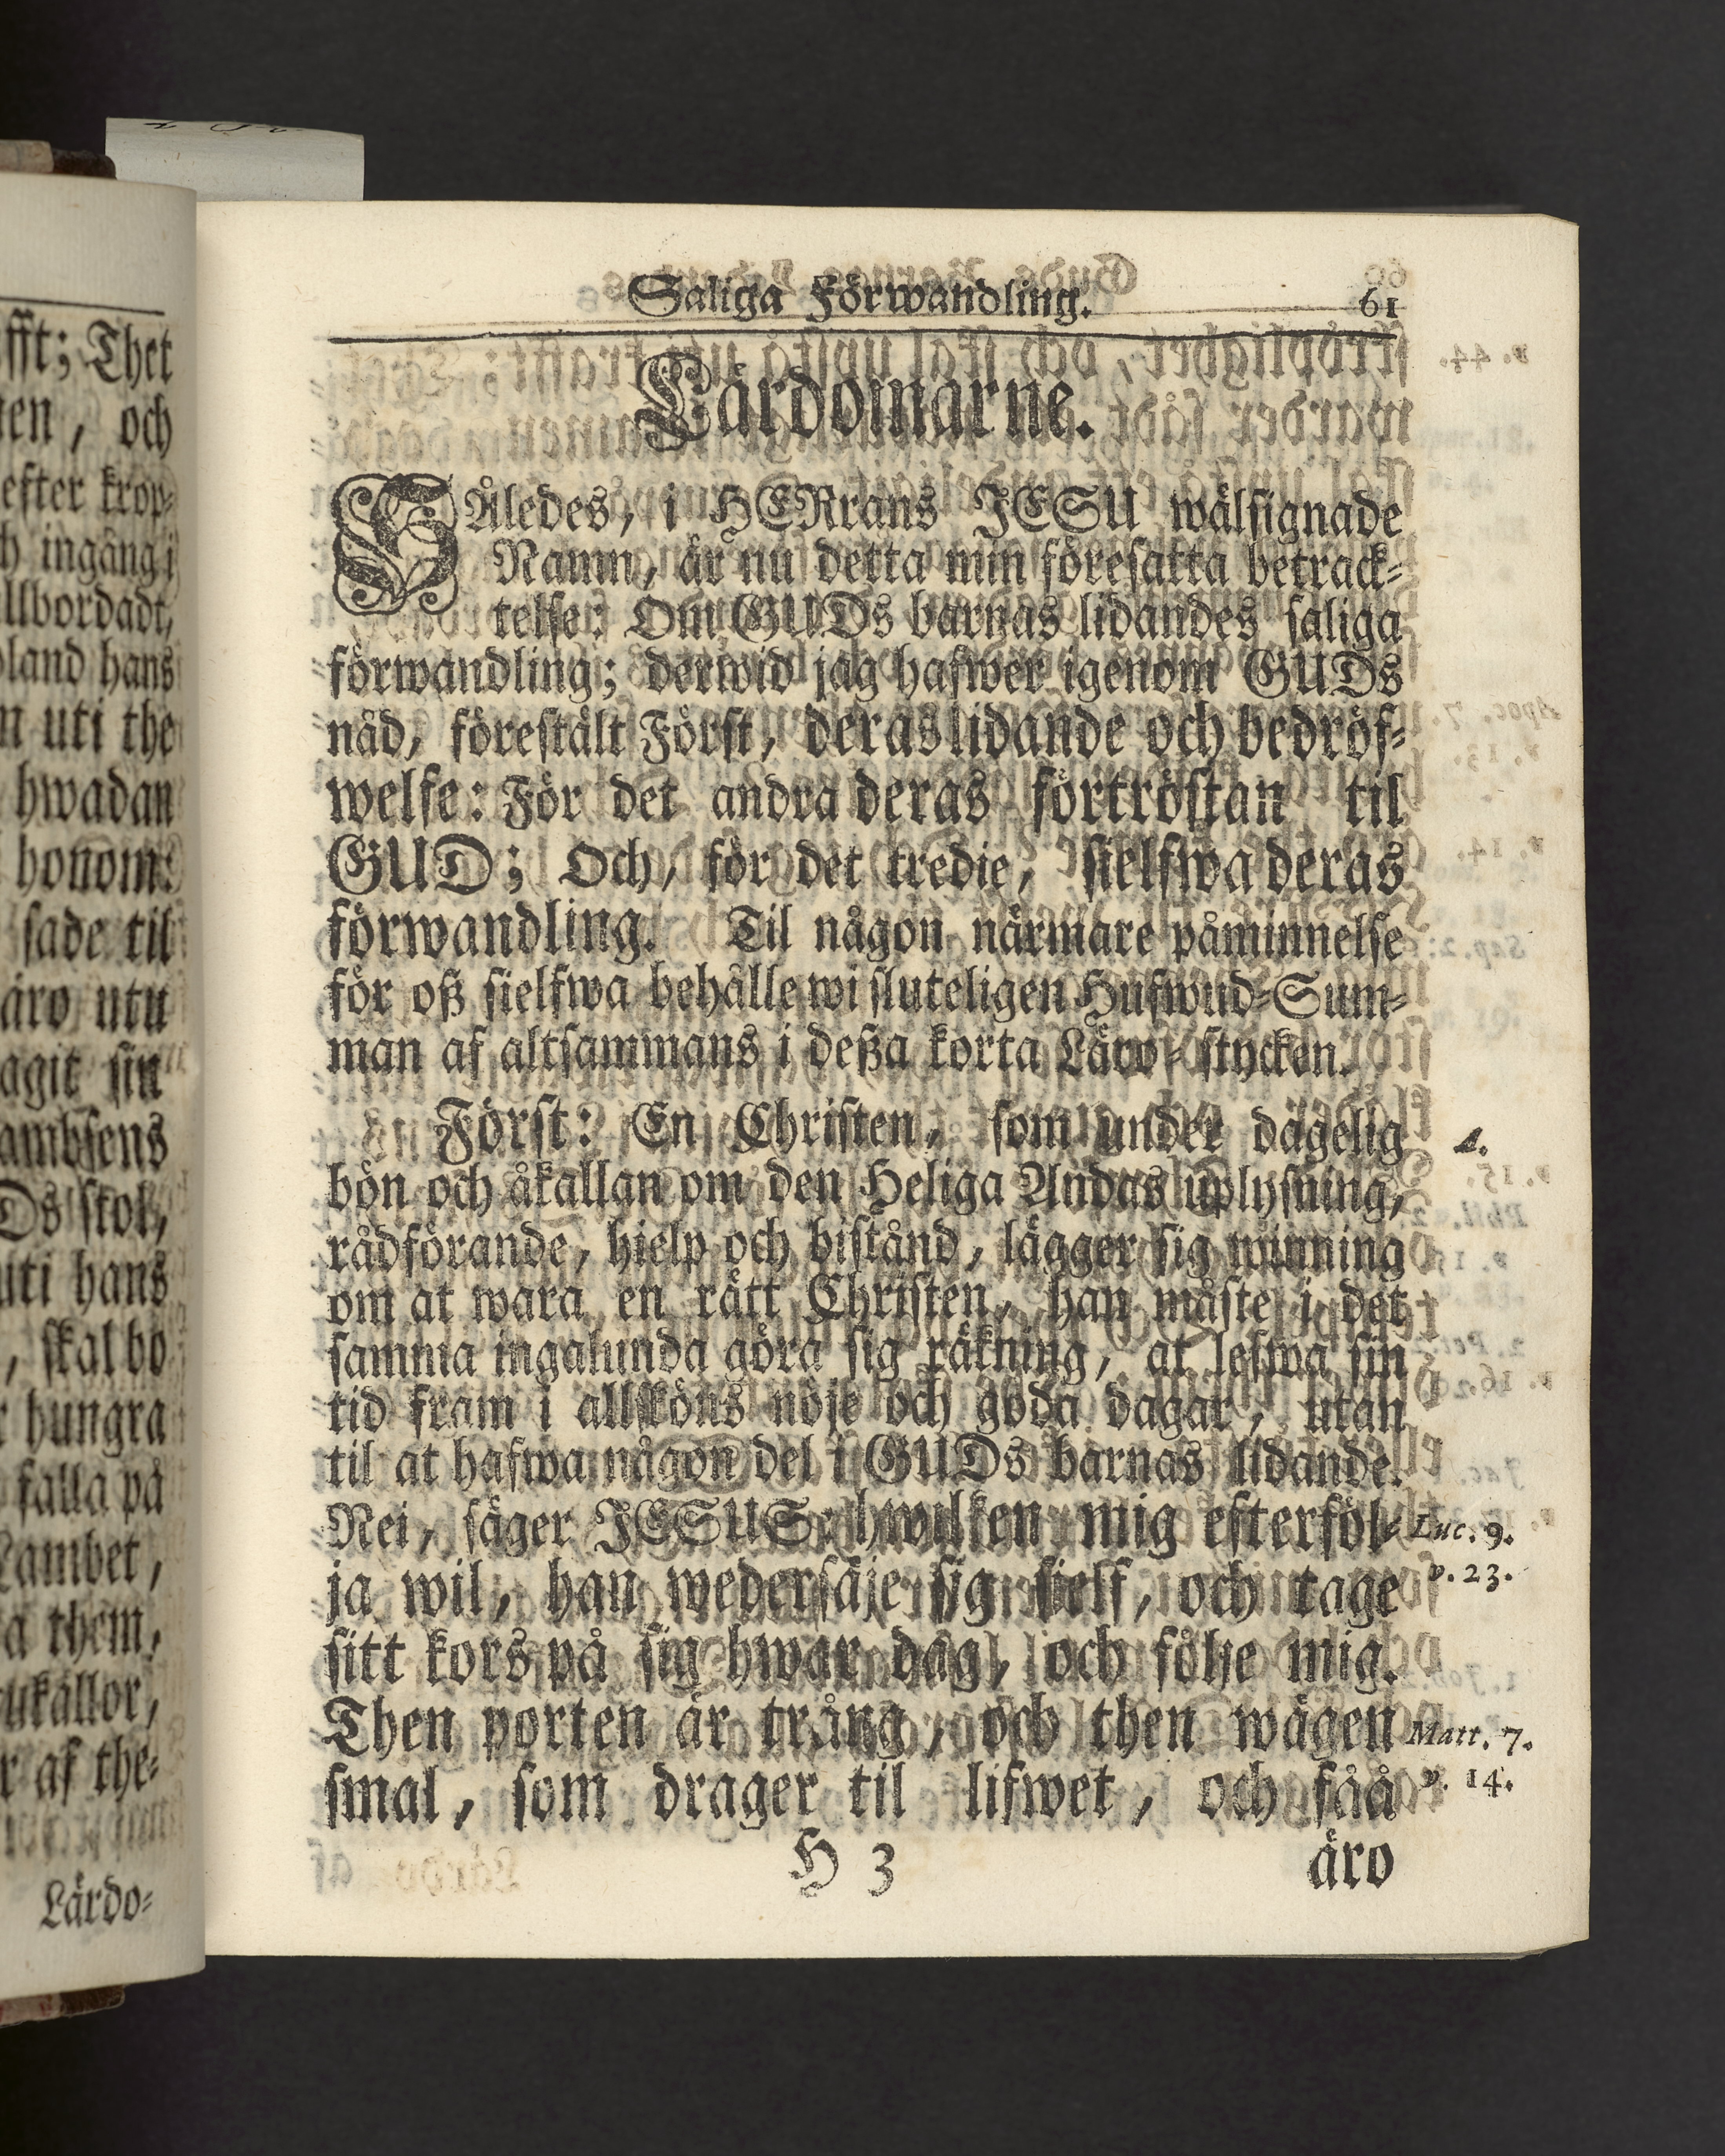 fft; Thet
en, och
efter krop-
h ingång i
llbordadt,
land hans
n uti the
hwadan
honom:
sade til
äro utu
agit sin
ambsens
Ds stol,
uti hans
, skal bo
hungra
falla på
Lambet,
a them,
ukällor,
r af the-
Lärdo-
Saliga Förwandling. 61
Lärdomarne.
SÅledes, i HERrans JESU wälsignade
Namn, är nu detta min föresatta betrack-
telse: Om GUDs barnas lidandes saliga
förwandling; derwid jag hafwer igenom GUDs
nåd, förestält Först, deras lidande och bedröf-
welse: För det andra deras förtröstan til
GUD; Och, för det tredie, sielfwa deras
förwandling. Til någon närmare påminnelse
för oß sielfwa behålle wi sluteligen Hufwud-Sum-
man af altsammans i deßa korta Läro-stycken.
Först: En Christen, som under dägelig
1.
bön och åkallan om den Heliga Andas uplysning,
rådförande, hielp och bistånd, lägger sig winning
om at wara en rätt Christen, han måste i det
samma ingalunda göra sig räkning, at lefwa sin
tid fram i allsköns nöje och goda dagar, utan
til at hafwa någon del i GUDs barnas lidande.
Nei, säger JESUS: hwilken mig efterföl-
Luc. 9.
ja wil, han wedersäje sig sielf, och tage
v. 23.
sitt kors på sig hwar dag, och följe mig.
Then porten är trång, och then wägen
Matt. 7.
smal, som drager til lifwet, och fåå
v. 14.
H 3 äro